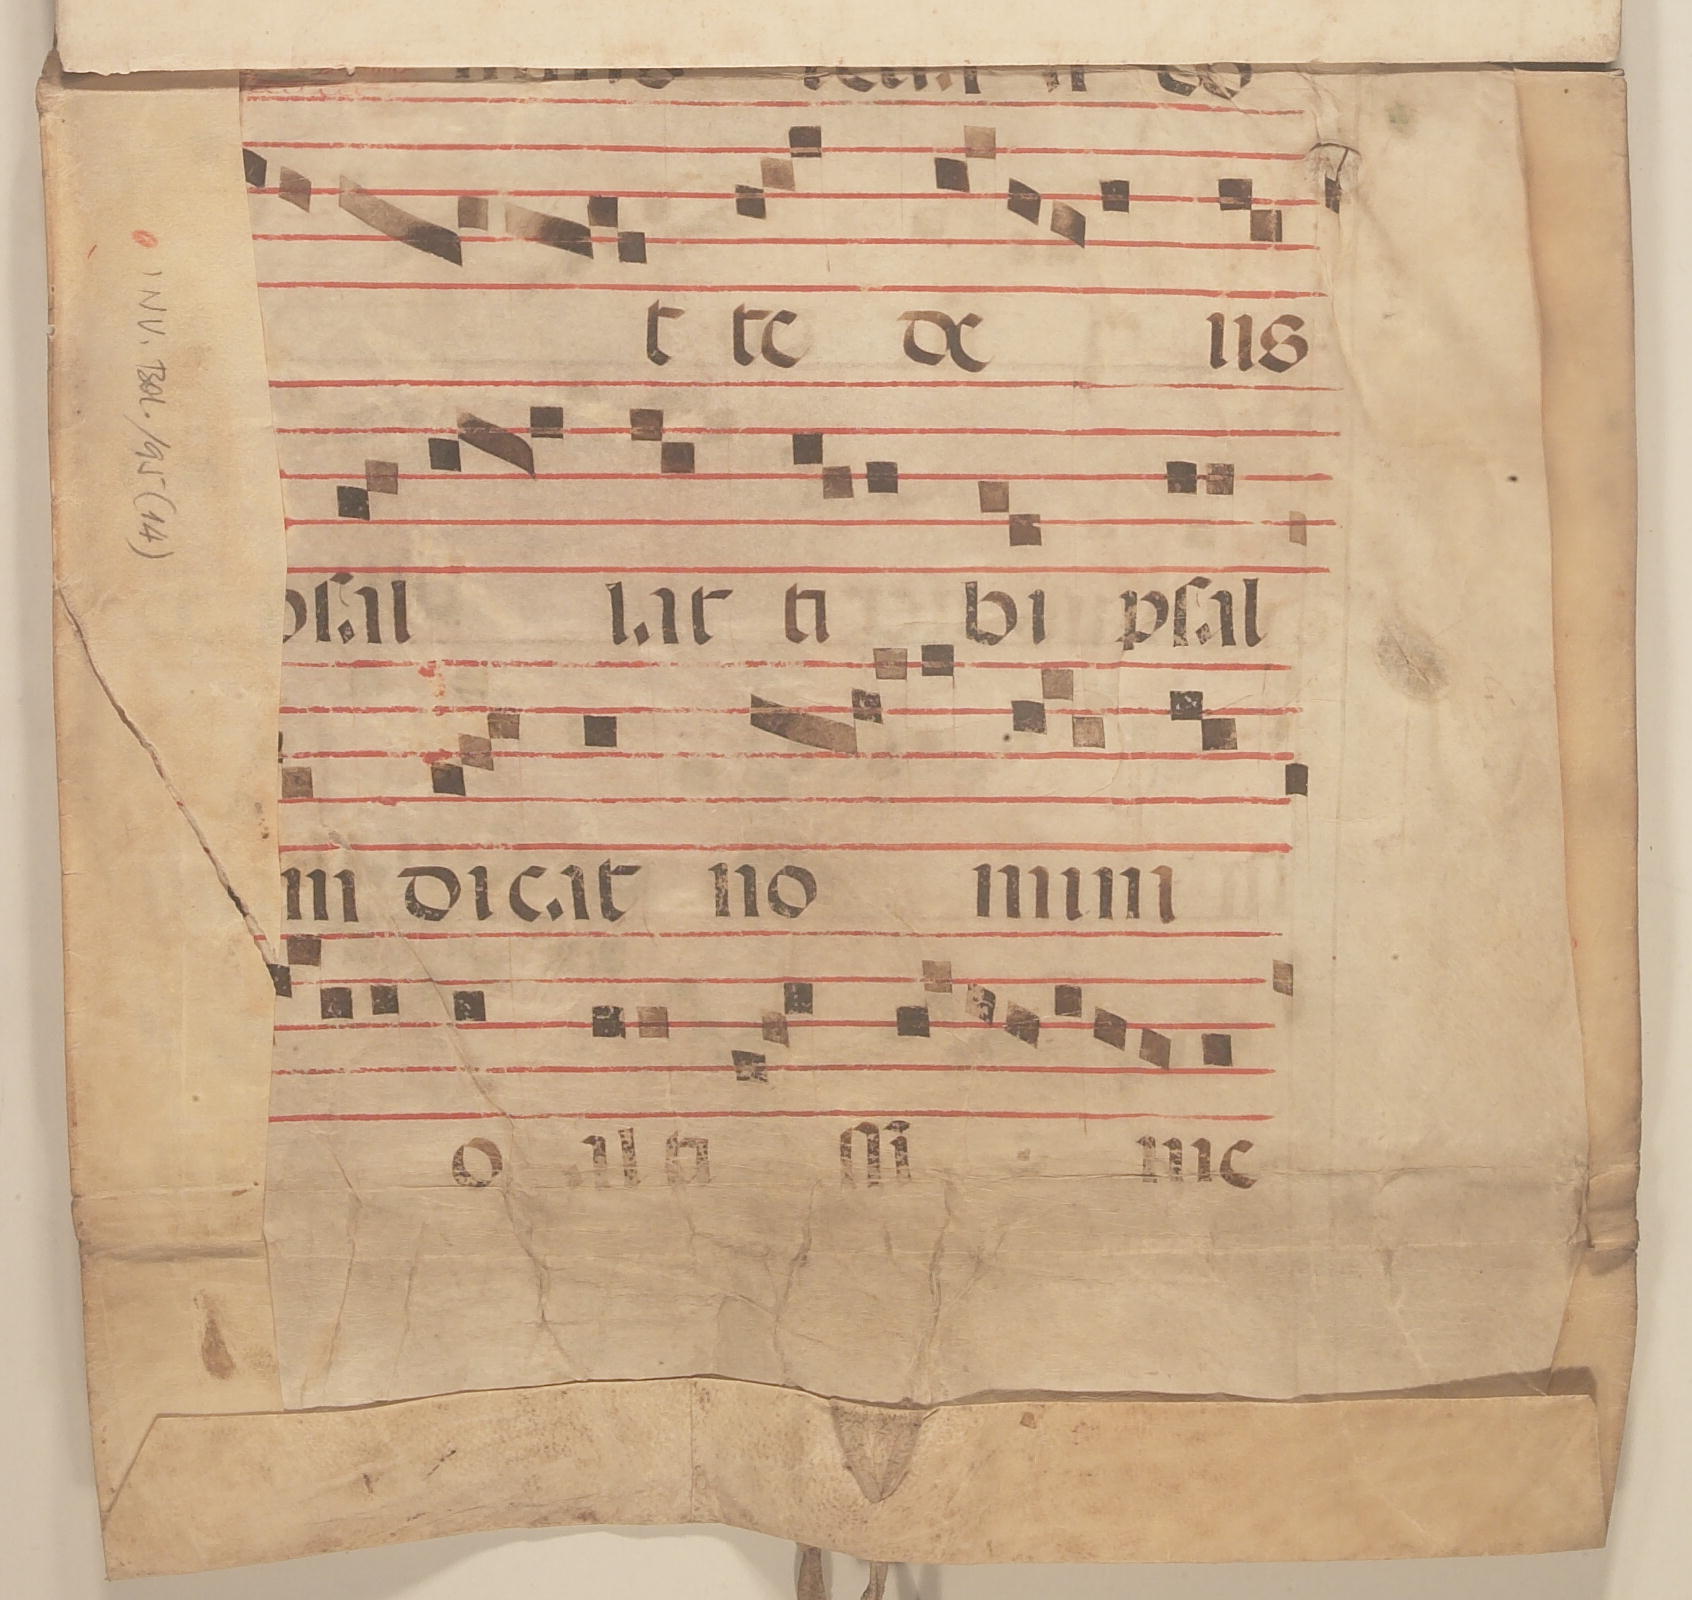 t te de us
psal lat ti bi psal
m dicat no mini
o alti ssi me
INV. BBL. /195 (14)